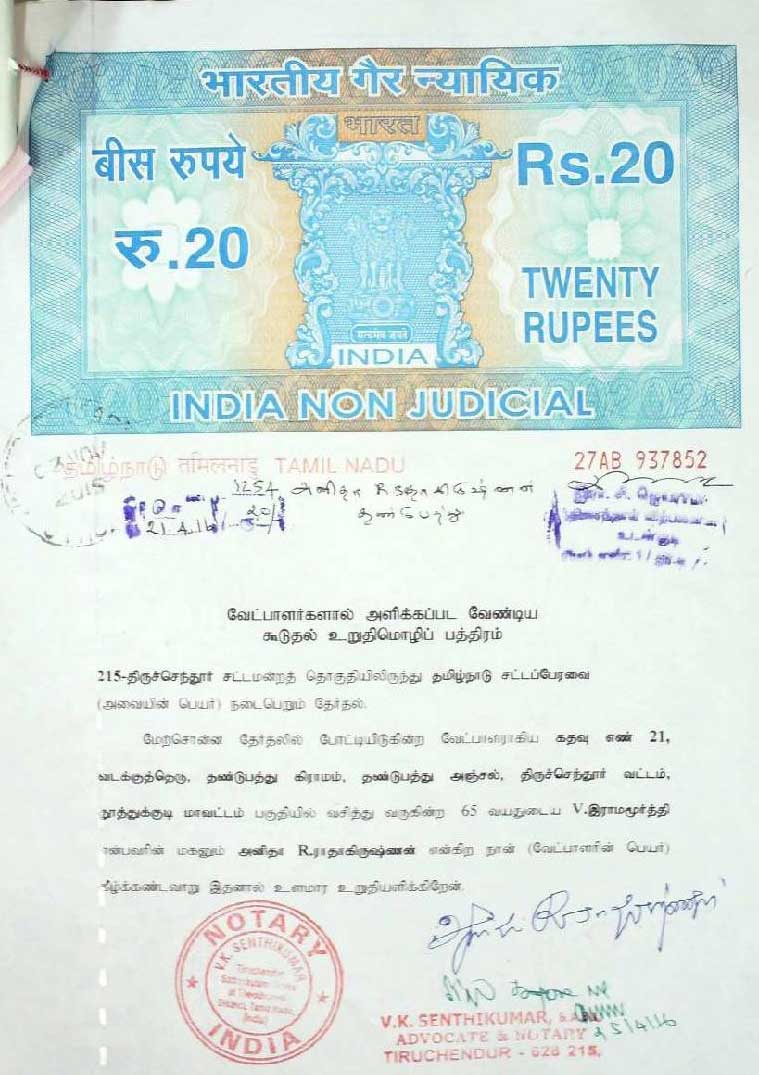 भारतीय गैर न्यायिक
भारत
बीस रुपये
Rs.20
रु.20
TWENTY
RUPEES
सत्यमेव जयते
INDIA
INDIA NON JUDICIAL
தமிழ்நாடு तमिलनाडु TAMIL NADU
27AB 937852
2015
1254 அனிதா R ராதாகிருஷ்ணன்
21.4.16 20/-
தண்டுபத்து
உடன்குடி
வேட்பாளர்களால் அளிக்கப்பட வேண்டிய
கூடுதல் உறுதிமொழிப் பத்திரம்
215-திருச்செந்தூர் சட்டமன்றத் தொகுதியிலிருந்து தமிழ்நாடு சட்டப்பேரவை
(அவையின் பெயர்) நடைபெறும் தேர்தல்.
மேற்சொன்ன தேர்தலில் போட்டியிடுகின்ற வேட்பாளராகிய கதவு எண் 21,
வடக்குத்தெரு, தண்டுபத்து கிராமம், தண்டுபத்து அஞ்சல், திருச்செந்தூர் வட்டம்,
தூத்துக்குடி மாவட்டம் பகுதியில் வசித்து வருகின்ற 65 வயதுடைய V.இராமமூர்த்தி
என்பவரின் மகனும் அனிதா R.ராதாகிருஷ்ணன் என்கிற நான் (வேட்பாளரின் பெயர்)
கீழ்க்கண்டவாறு இதனால் உளமார உறுதியளிக்கிறேன்.
NOTARY
V.K. SENTHIKUMAR
INDIA
V.K. SENTHIKUMAR,
ADVOCATE & NOTARY
25/4/16
TIRUCHENDUR - 628 215.